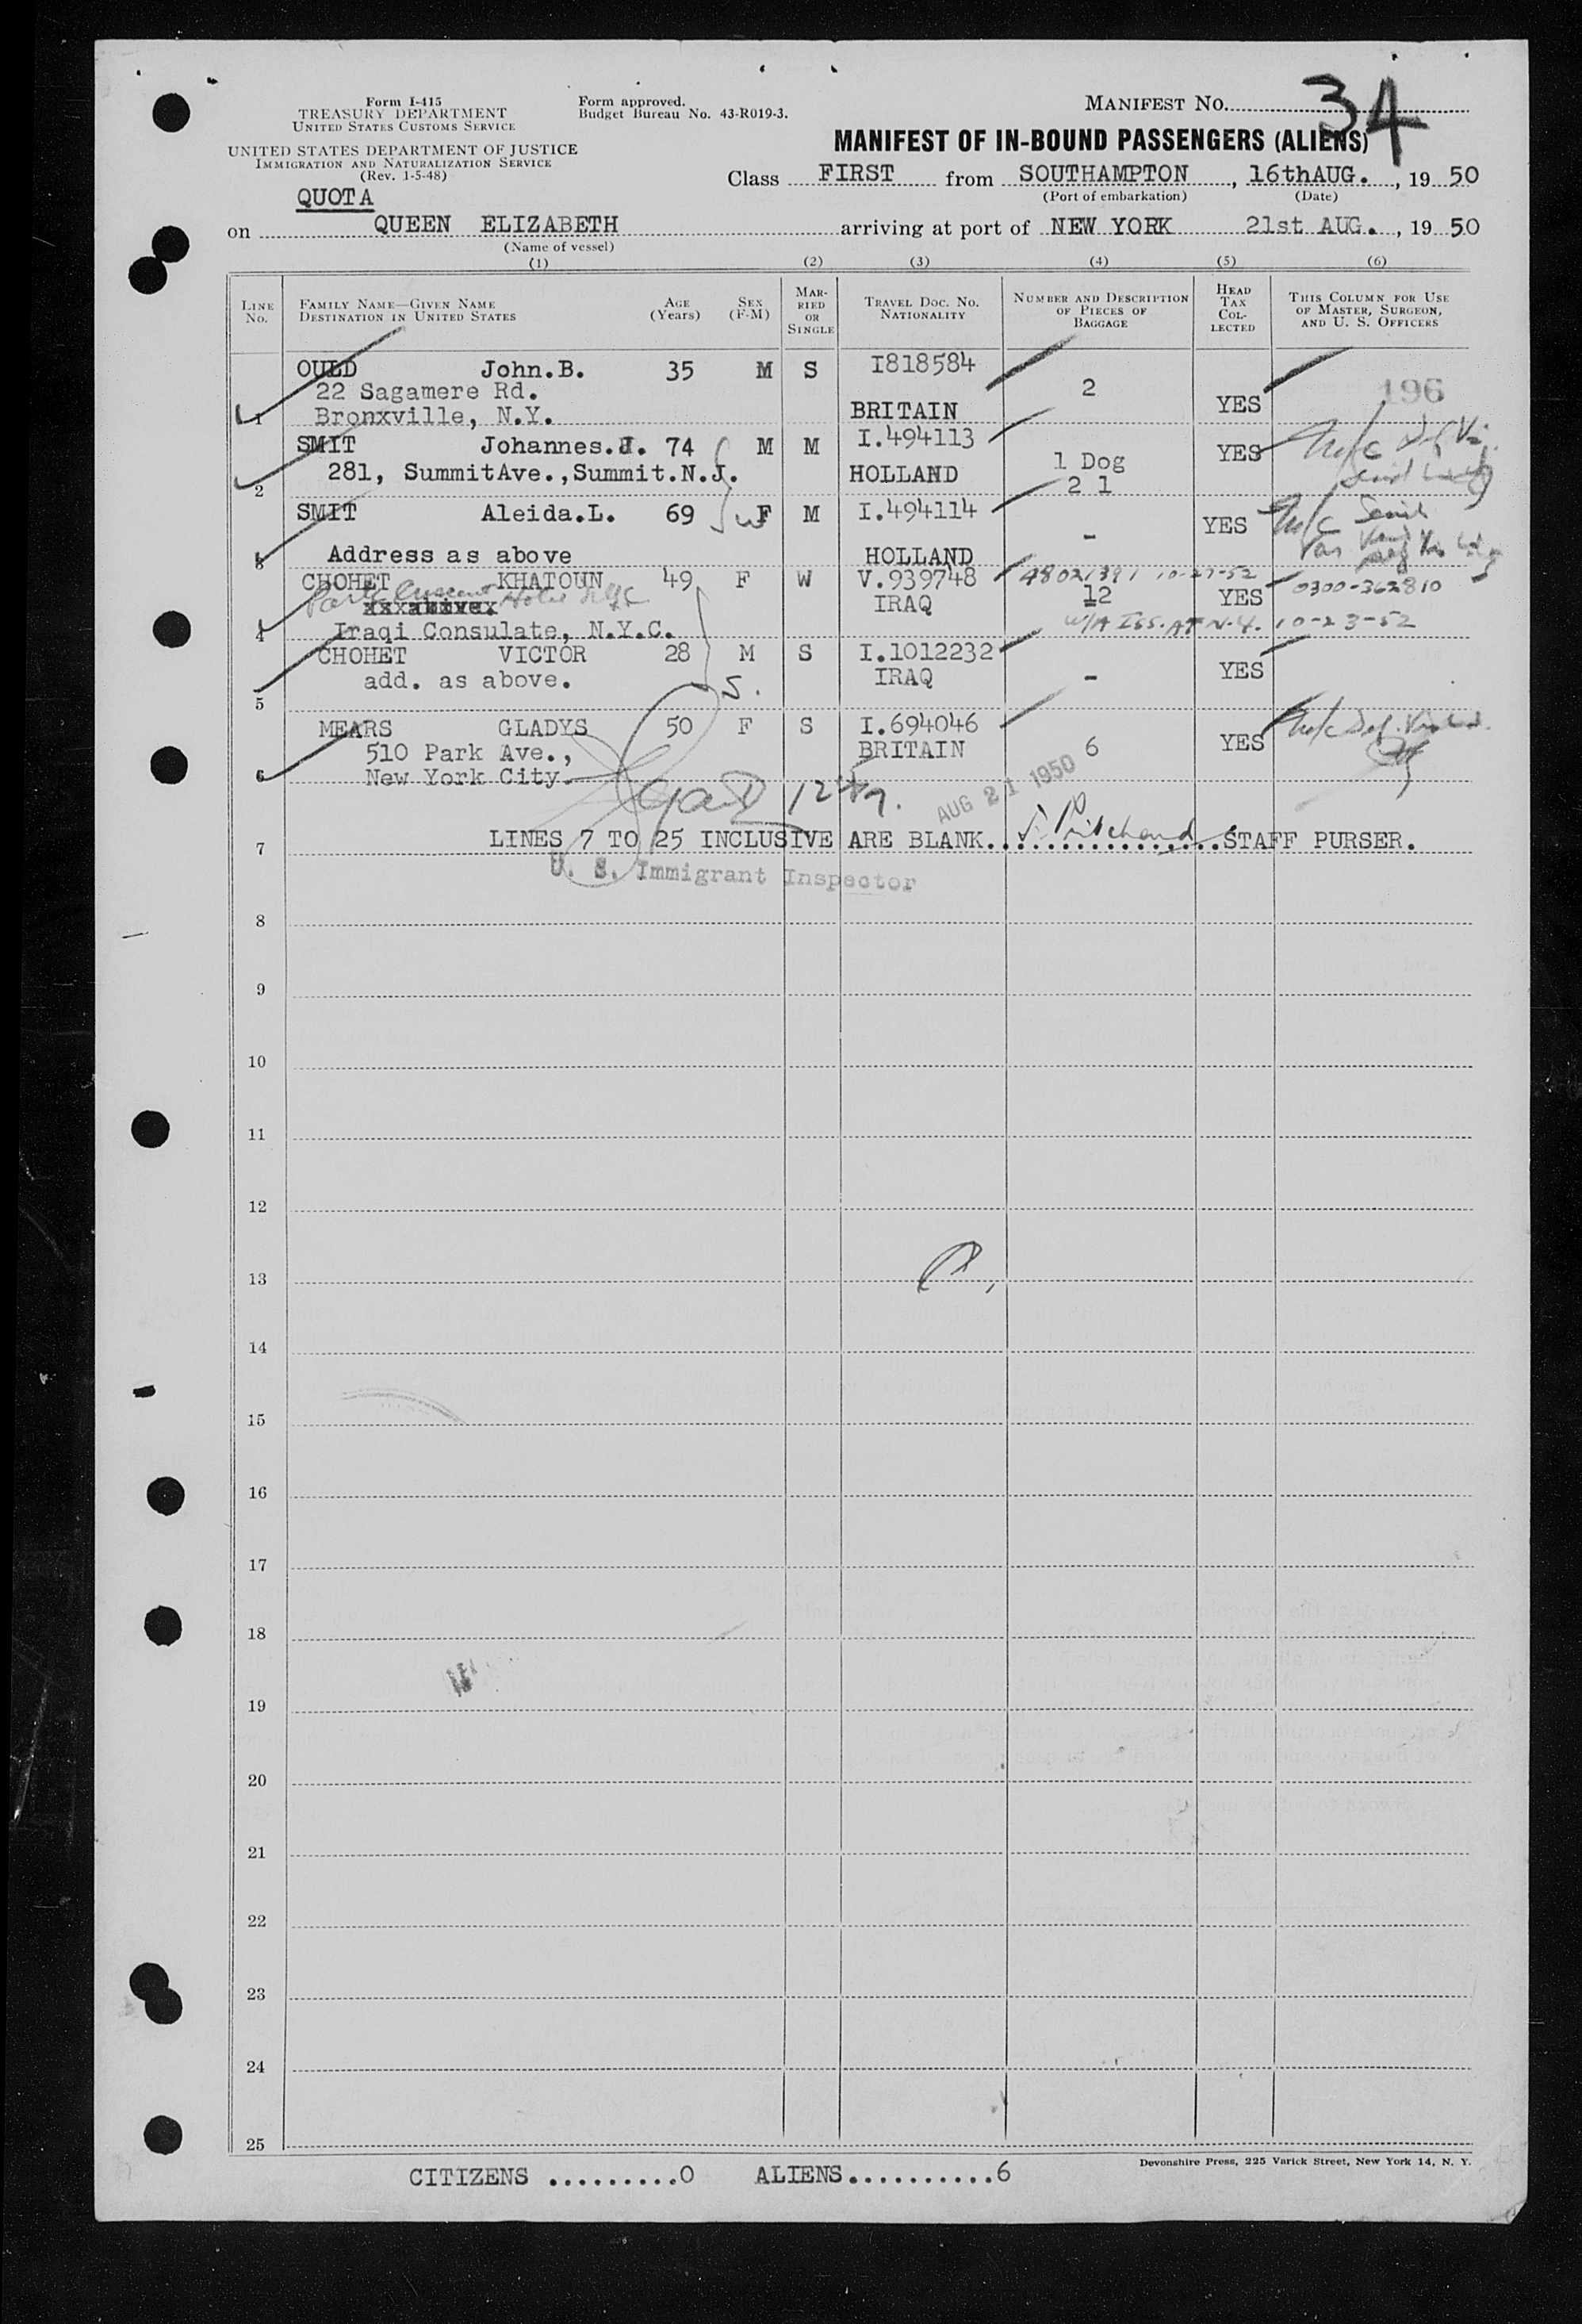 Form I-415
TREASURY DEPARTMENT
UNITED STATES CUSTOMS SERVICE
UNITED STATES DEPARTMENT OF JUSTICE
IMMIGRATION AND NATURALIZATION SERVICE
(Rev. 1-5-48)
Form approved.
Budget Bureau No. 43-R019-3.
MANIFEST NO. 34
MANIFEST OF IN-BOUND PASSENGERS (ALIENS)
Class FIRST from SOUTHAMPTON, 16thAUG., 1950
(Port of embarkation) (Date)
QUOTA
on QUEEN ELIZABETH arriving at port of NEW YORK 21st AUG., 1950
(Name of vessel)
(1) (2) (3) (4) (5) (6)
LINE NO. FAMILY NAME—GIVEN NAME DESTINATION IN UNITED STATES AGE (YEARS) SEX (F-M) MARRIED OR SINGLE TRAVEL DOC. NO. NATIONALITY NUMBER AND DESCRIPTION OF PIECES OF BAGGAGE HEAD TAX COLLECTED THIS COLUMN FOR USE OF MASTER, SURGEON, AND U. S. OFFICERS
OULD John.B. 35 M S I818584
22 Sagamere Rd. 2 196
1 Bronxville, N.Y. BRITAIN YES
SMIT Johannes.J. 74 M M I.494113 YES
281, SummitAve.,Summit.N.J. HOLLAND 1 Dog
2 21
SMIT Aleida.L. 69 F M I.494114 YES
3 Address as above HOLLAND -
CHOHET KHATOUN 49 F W V.939748 48021391 10-27-52
Park Crescent Hotel NYC IRAQ 12 YES 0300-362810
4 Iraqi Consulate, N.Y.C. W/A ISS. AT N.Y. 10-23-52
CHOHET VICTOR 28 M S I.1012232
add. as above. S. IRAQ - YES
5
MEARS GLADYS 50 F S I.694046
510 Park Ave., BRITAIN 6 YES
6 New York City
AUG 21 1950
7 LINES 7 TO 25 INCLUSIVE ARE BLANK. J. Pritchard STAFF PURSER.
U. S. Immigrant Inspector
8
9
10
11
12
13
14
15
16
17
18
19
20
21
22
23
24
25
CITIZENS .........0 ALIENS..........6
Devonshire Press, 225 Varick Street, New York 14, N. Y.